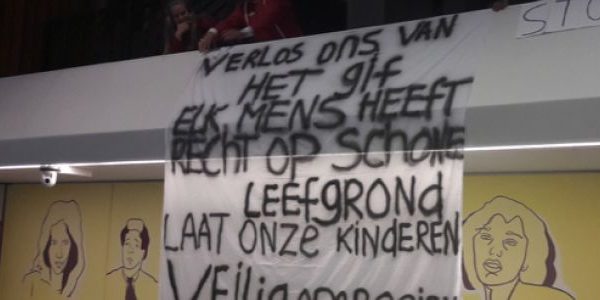 STO
VERLOS ONS VAN
HET gif
ELK MENS HEEFT
RECHT OP SCHONE
LEEFGROND
LAAT ONZE KINDEREN
VEilig